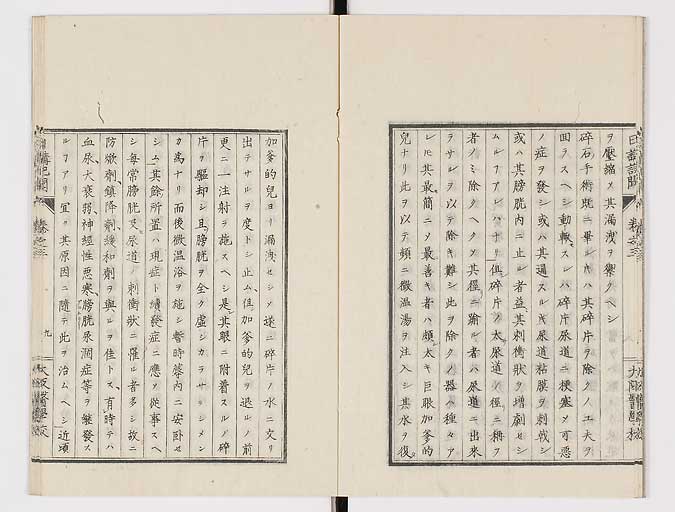 ヲ壓縮メ其漏洩ヲ禦クヘシ
碎石手術既ニ畢レハ其碎片ヲ除クノ工夫ヲ
回ラスヘシ動輙スレハ碎片尿道ニ梗塞メ可恐
ノ症ヲ發シ或ハ其過スルキ尿道粘膜ヲ刺戟シ
或ハ其膀胱内ニ止レル者益其刺衝狀ヲ増劇セシ
ムルアレハナリ但碎片ノ太尿道ノ徑ニ稱フ
者ノミ除クヘクメ其徑ニ踰ル者ハ尿道ニ出來
ラサルヲ以テ除キ難シ此ヲ除クノ器ハ種々ア
レ𪜈其最簡ニメ最善キ者ハ頗太キ巨眼加爹的
兒ナリ此ヲ以テ頻ニ微温湯ヲ注入シ其水ヲ復
加爹的兒ヨリ漏洩セシメ遂ニ碎片ノ水ニ交リ
出テサルヲ度トシ止ム但加爹的兒ヲ退ルノ前
更ニ一注射ヲ施スヘシ是其眼ニ附着スルノ碎
片ヲ驅却シ且膀胱ヲ全ク虚シカラサラシメン
カ爲ナリ而後微温浴ヲ施シ暫時蓐内ニ安臥セ
シム其餘所置ハ現症ト續發症ニ應メ從事スヘ
シ毎常膀胱又尿道ノ刺衝狀ニ罹ル者多シ故ニ
防焮劑鎮降劑緩和劑ヲ與ルヲ佳トス有時テハ
血尿大衰弱神經性悪寒膀胱尿澗症等ヲ繼發ス
ルアリ宜ク其原因ニ隨テ此ヲ治ムヘシ近頃
日講記聞
巻之三
九
大阪醫學校